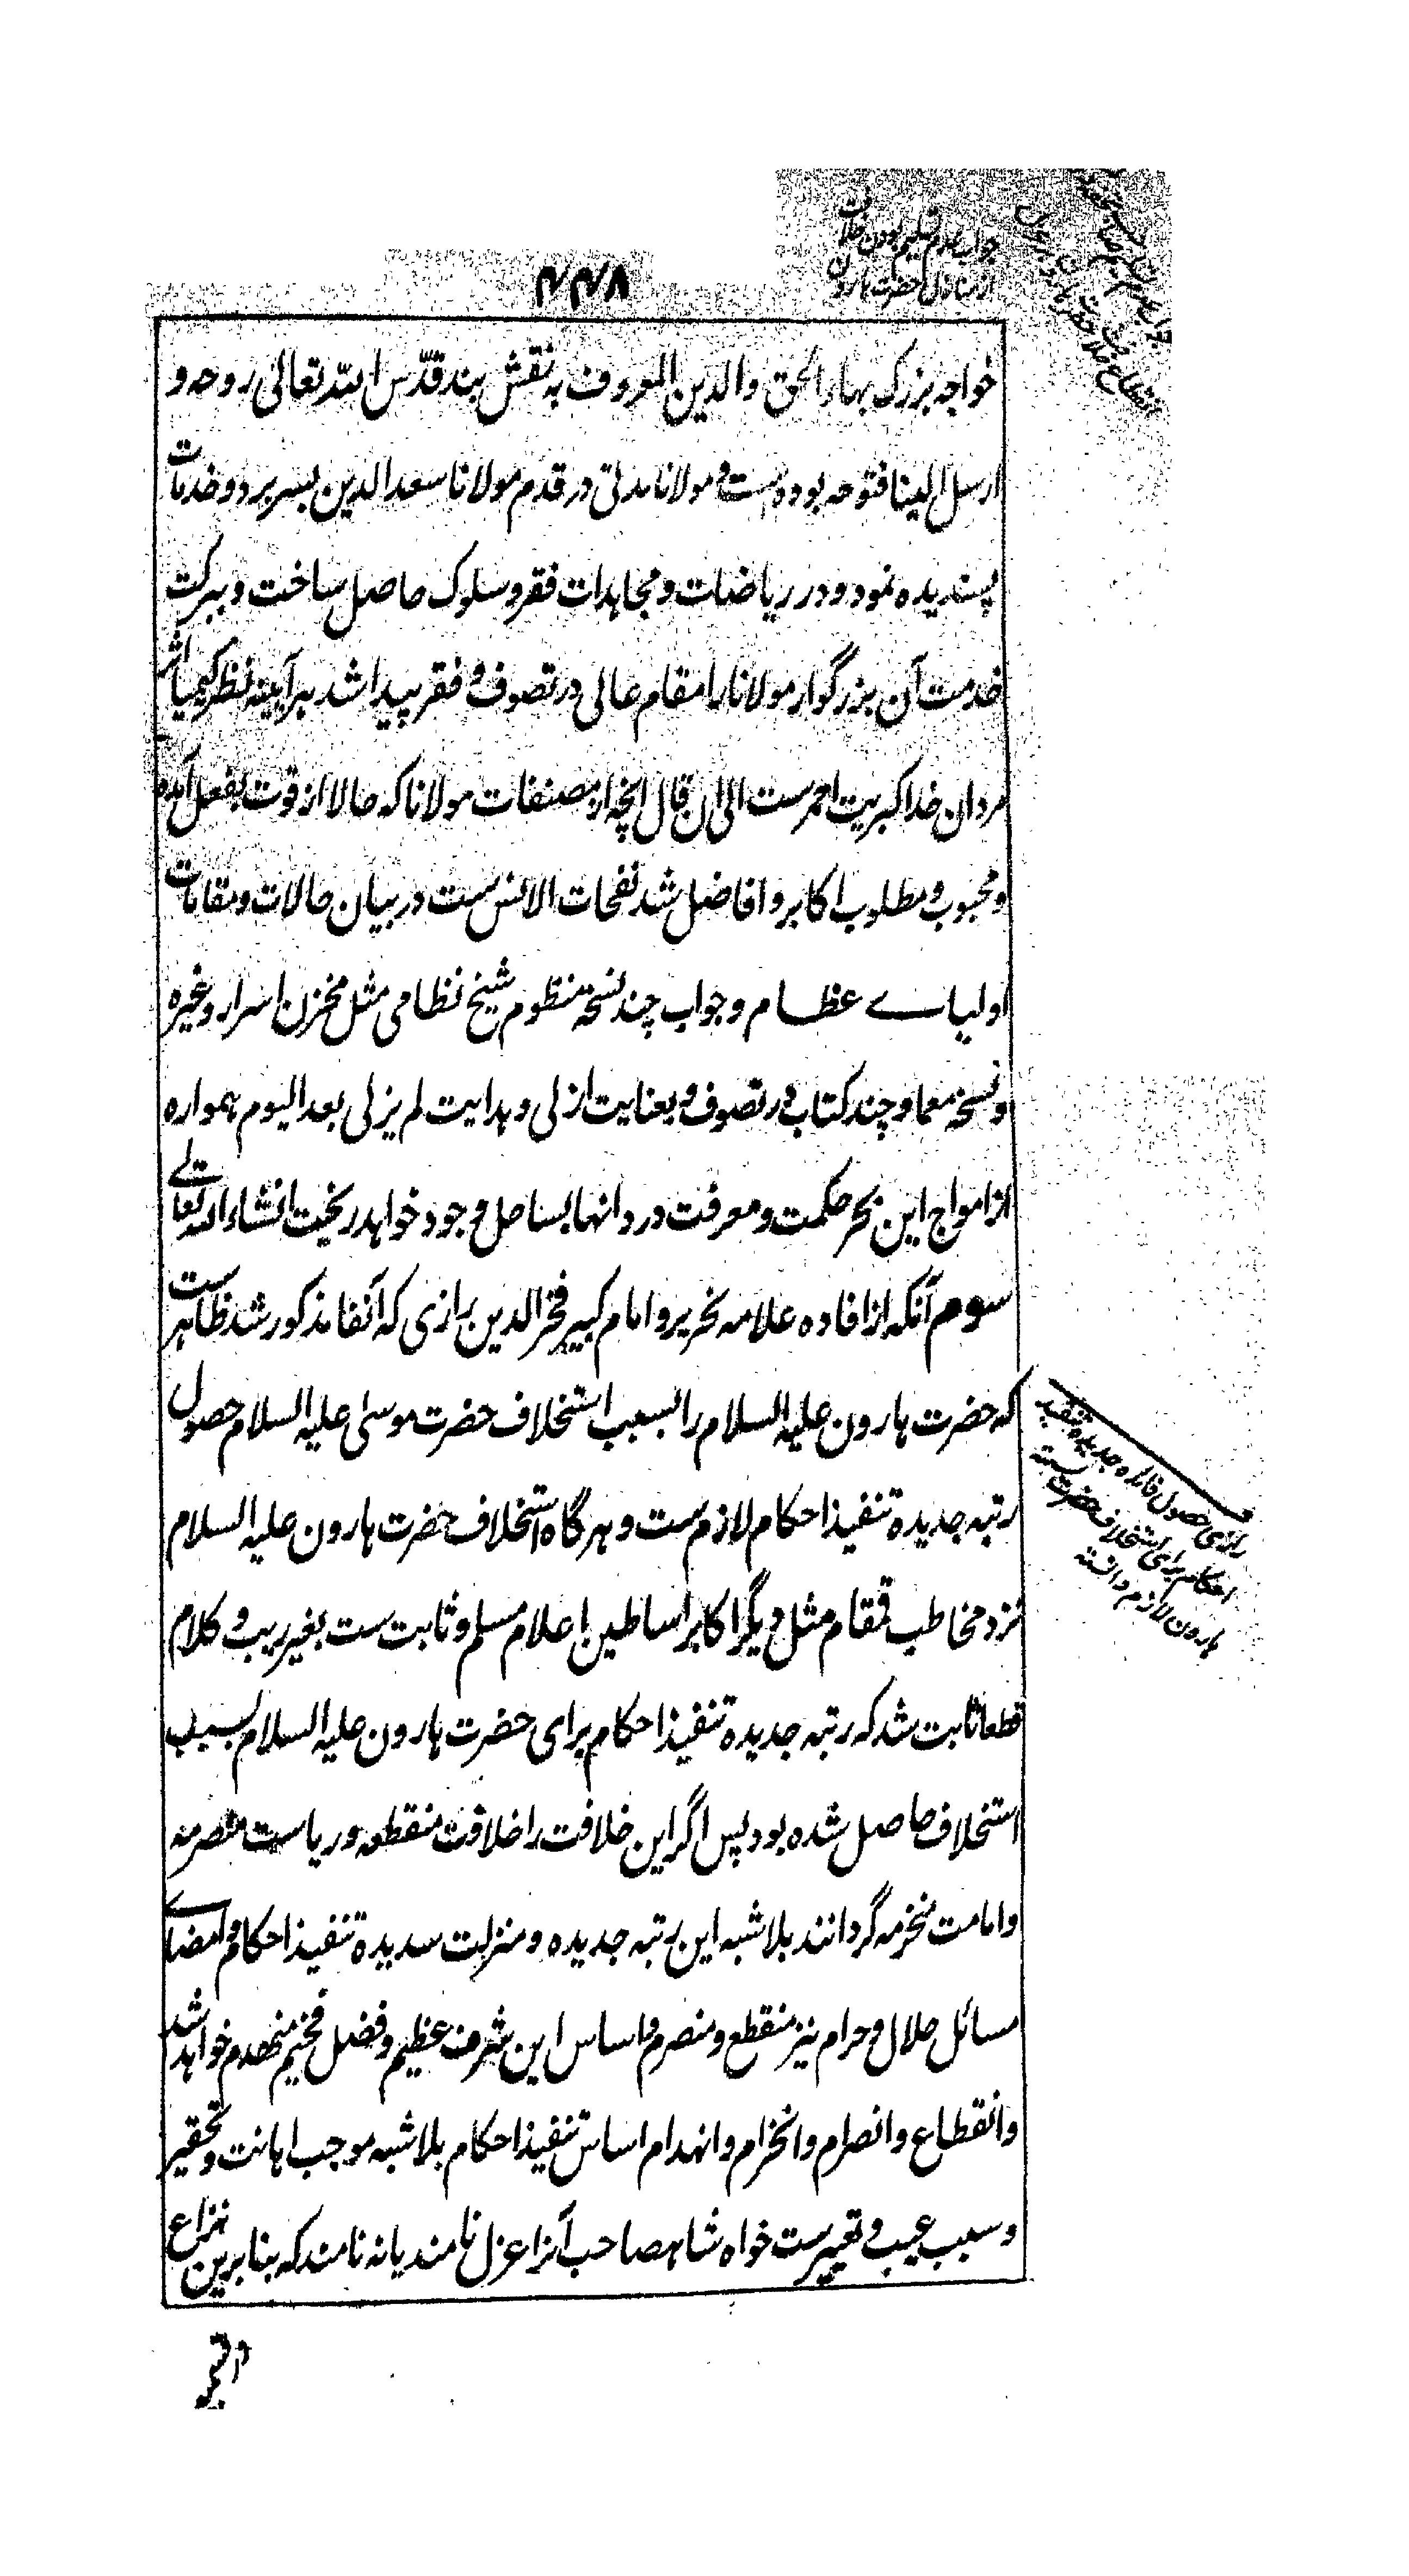 ۴۴۸
جواب عدم تسلیم بودن خلافت
از منازل حضرت هارون
خواجه بزرگ بهاء الحق والدین المعروف به نقش بند قدّس الله تعالی روحه و
ارسل الینا فتوحه بوده ست و مولانا مدتی در قدم مولانا سعد الدین بسر برد و خدمات
پسندیده نمود و در ریاضات و مجاهدات فقر و سلوک حاصل ساخت و ببرکت
خدمت آن بزرگوار مولانا را مقام عالی در تصوف و فقر پیدا شد هرآیینه نظر کیمیا اثر
مردان خدا کبریت احمرست الی ان قال انچه از مصنفات مولانا که حالا از قوت بفعل آمده
و محبوب و مطلوب اکابر و افاضل شد نفحات الانس ست در بیان حالات و مقامات
اولیاے عظام و جواب چند نسخهٔ منظوم شیخ نظامی مثل مخزن اسرار و غیره
و نسخهٔ معما و چند کتاب در تصوف و بعنایت ازلی و هدایت لم یزلی بعد الیوم همواره
از امواج این بحر حکمت و معرفت درر دانها بساحل وجود خواهد ریخت انشاء الله تعالے
سوم آنکه از افاده علامه نحریر و امام کبیر فخر الدین رازی که آنفا مذکور شد ظاهرست
که حضرت هارون علیه السلام را بسبب استخلاف حضرت موسی علیه السلام حصول
رتبه جدیدة تنفیذ احکام لازم ست و هرگاه استخلاف حضرت هارون علیه السلام
نزد مخاطب قمقام مثل دیگر اکابر اساطین اعلام مسلم و ثابت ست بغیر ریب و کلام
قطعا ثابت شد که رتبه جدیدة تنفیذ احکام برای حضرت هارون علیه السلام بسبب
استخلاف حاصل شده بود پس اگر این خلافت را خلافت منقطعه و ریاست منصرمه
و امامت منخرمه گردانند بلاشبه این رتبه جدیده و منزلت سدیدة تنفیذ احکام و امضاے
مسائل حلال و حرام نیز منقطع و منصرم و اساس این شرف عظیم و فضل فخیم منهدم خواهد شد
و انقطاع و انصرام و انخرام و انهدام اساس تنفیذ احکام بلاشبه موجب اهانت و تحقیر
و سبب عیب و تعییرست خواه شاهصاحب آنرا عزل نامند یا نه نامند که بنابرین نزاع
رازی حصول فائده جدیده تنفیذ
احکام برای استخلاف حضرت
هارون لازم دانسته